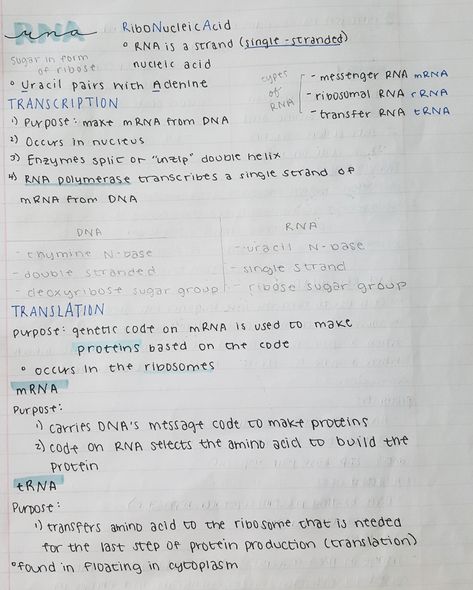 RNA
rna
RiboNucleicAcid
° RNA is a strand (single-stranded)
nucleic acid
Sugar in form
of ribose
° Uracil pairs with Adenine
types
of
RNA
- messenger RNA mRNA
- ribosomal RNA rRNA
- transfer RNA tRNA
TRANSCRIPTION
1) Purpose: make mRNA from DNA
2) Occurs in nucleus
3) Enzymes split or "unzip" double helix
4) RNA polymerase transcribes a single strand of
mRNA from DNA
DNA
- thymine N-base
- double stranded
- deoxyribose sugar group
RNA
- uracil N-base
- single strand
- ribose sugar group
TRANSLATION
purpose: genetic code on mRNA is used to make
proteins based on the code
° occurs in the ribosomes
mRNA
Purpose:
1) carries DNA's message code to make proteins
2) code on RNA selects the amino acid to build the
protein
tRNA
Purpose:
1) transfers amino acid to the ribosome that is needed
for the last step of protein production (translation)
°found in floating in cytoplasm